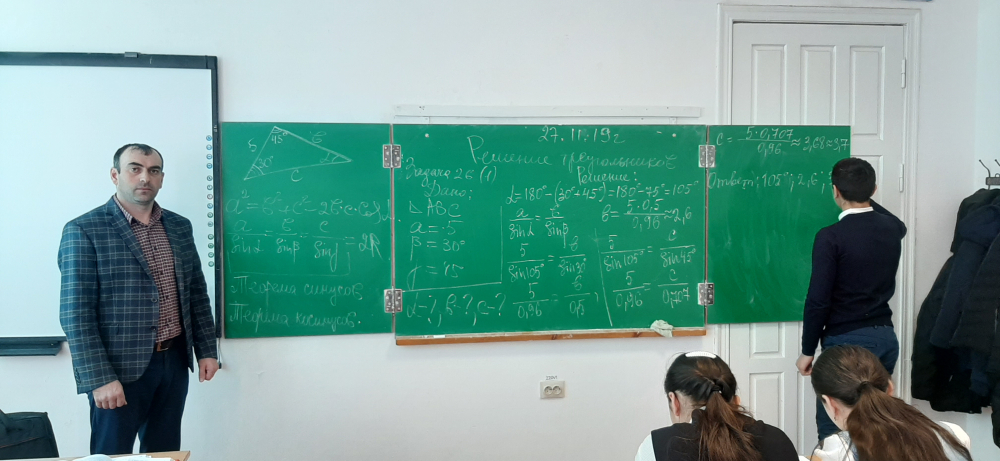 45°
в
в
30°
α
c
a² = в² + c² - 2в·c·cosα
a/sinα = в/sinβ = c/sinγ = 2R
Теорема синусов
Теорема косинусов.
27.11.19г
Решение треугольников
Задача 26 (1)
Дано:
△ABC
a = 5
β = 30°
γ = 45
α-?, в-?, c-?
Решение:
α = 180° - (30° + 45°) = 180° - 75° = 105°
a/sinα = в/sinβ
5/sin105° = в/sin30°
5/0,96 = в/0,5
в = 5·0.5/0,96 ≈ 2,6
5/sin105° = c/sin45°
5/0,96 = c/0,707
c = 5·0,707/0,96 ≈ 3,68 ≈ 3,7
Ответ: 105°; 2,6;